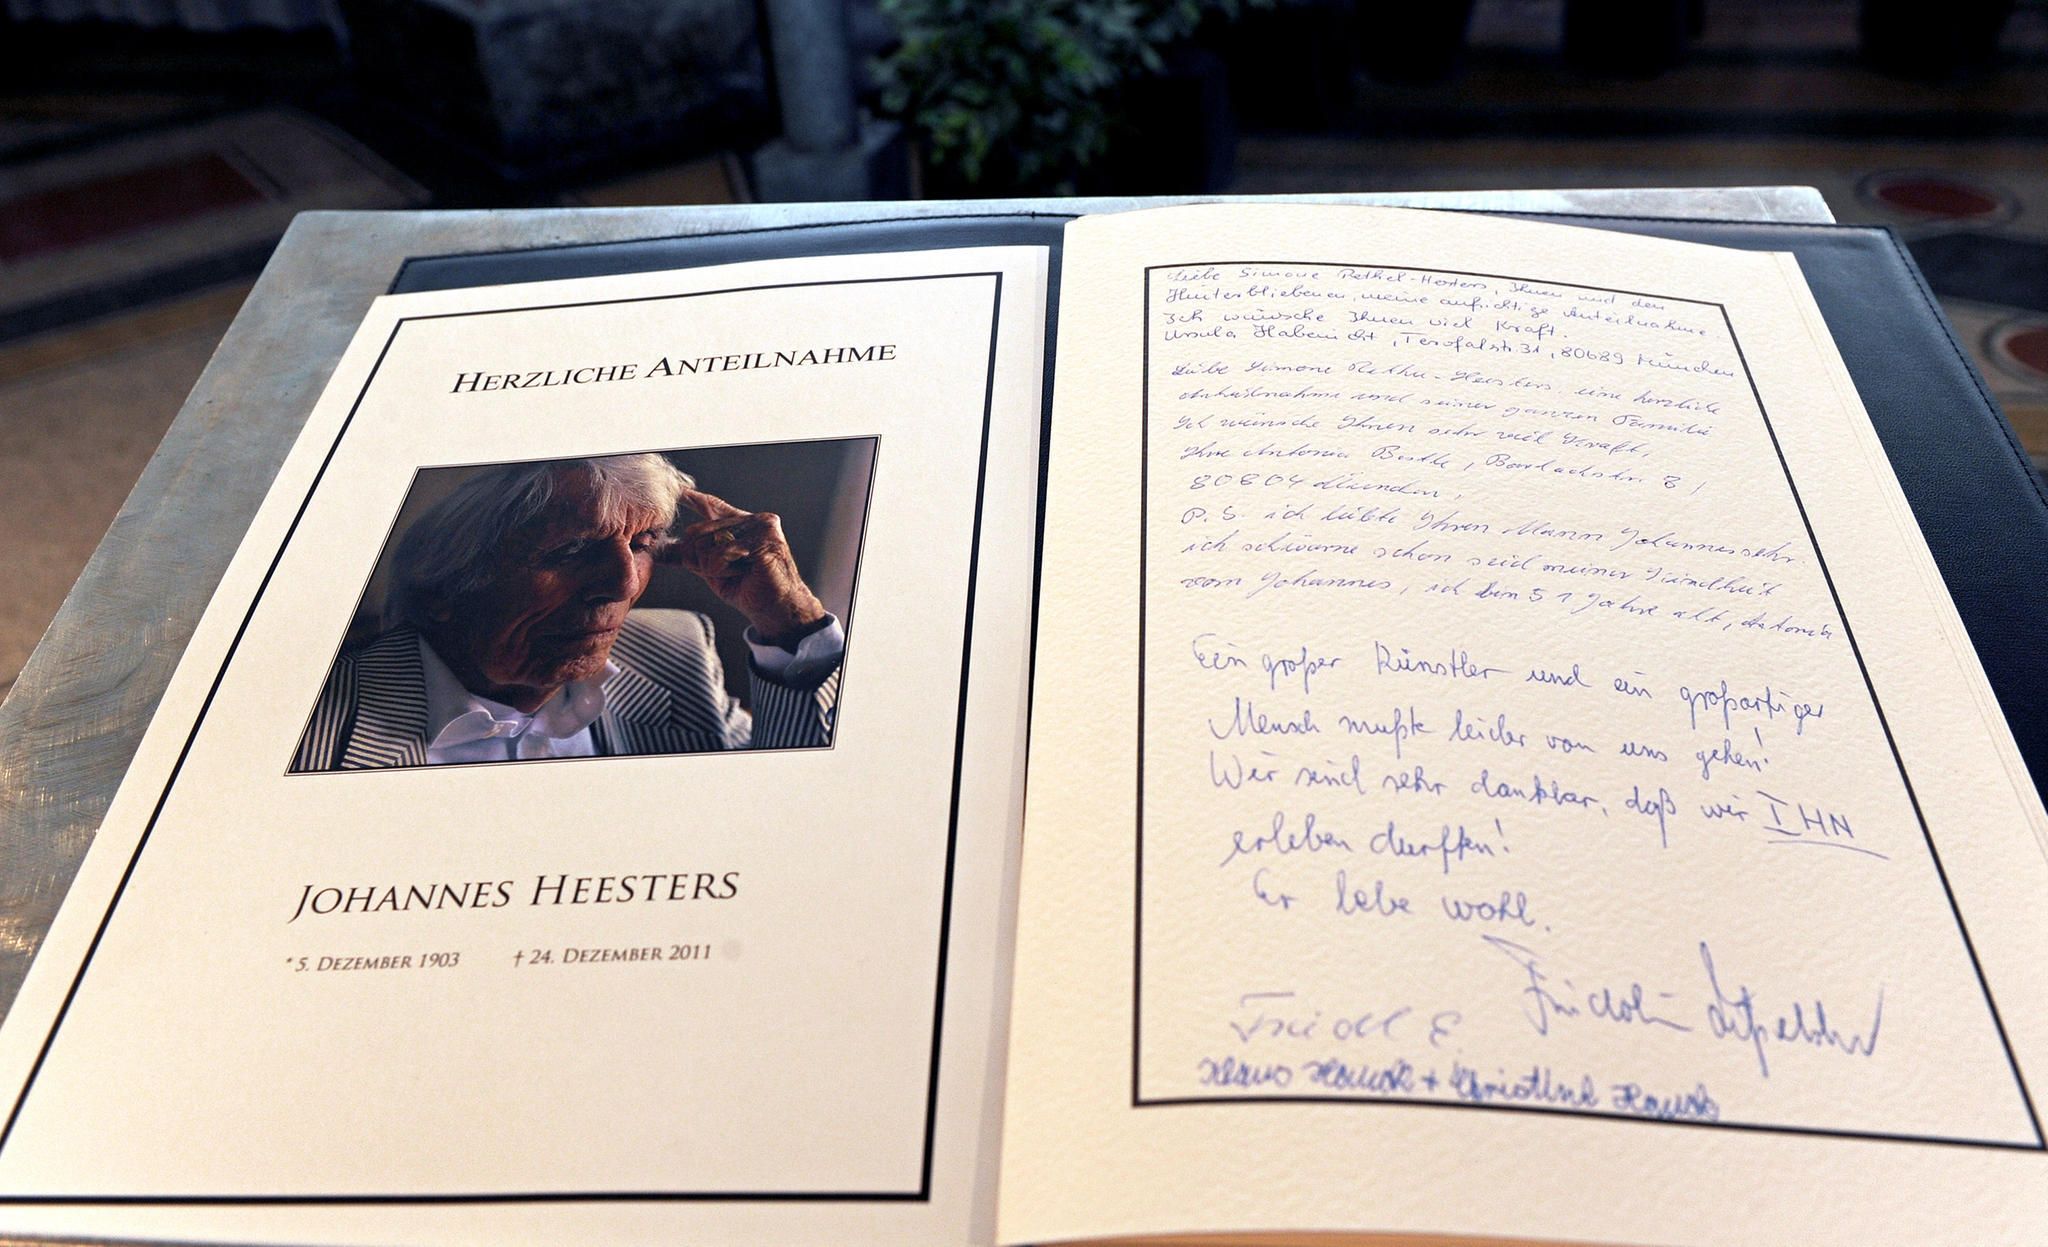 HERZLICHE ANTEILNAHME
JOHANNES HEESTERS
* 5. DEZEMBER 1903 † 24. DEZEMBER 2011
Liebe Simone Rethel-Hesters, Ihnen und den
Hinterbliebenen, meine aufrichtige Anteilnahme.
Ich wünsche Ihnen viel Kraft.
Ursula Habenicht, Terofalstr. 31, 80689 München
Liebe Simone Heesters. eine herzliche
Anteilnahme und seiner ganzen Familie
Ich wünsche Ihnen sehr viel Kraft,
Ihre Antonia 8,
80804 München,
P.S. ich liebte Ihren Mann Johannes sehr.
ich schwärme schon seid meiner Kindheit
vom Johannes, ich bin 51 Jahre alt, Antonia
Ein großer Künstler und ein großartiger
Mensch mußte leider von uns gehen!
Wir sind sehr dankbar, daß wir IHN
erleben durften!
Er lebe wohl.
Fridolin
Friedl E.
Klaus + Christine